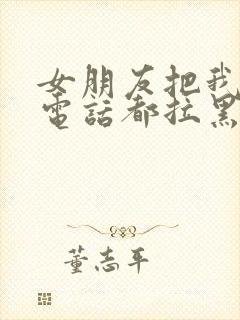 女朋友把我
電話都拉黑
董志平